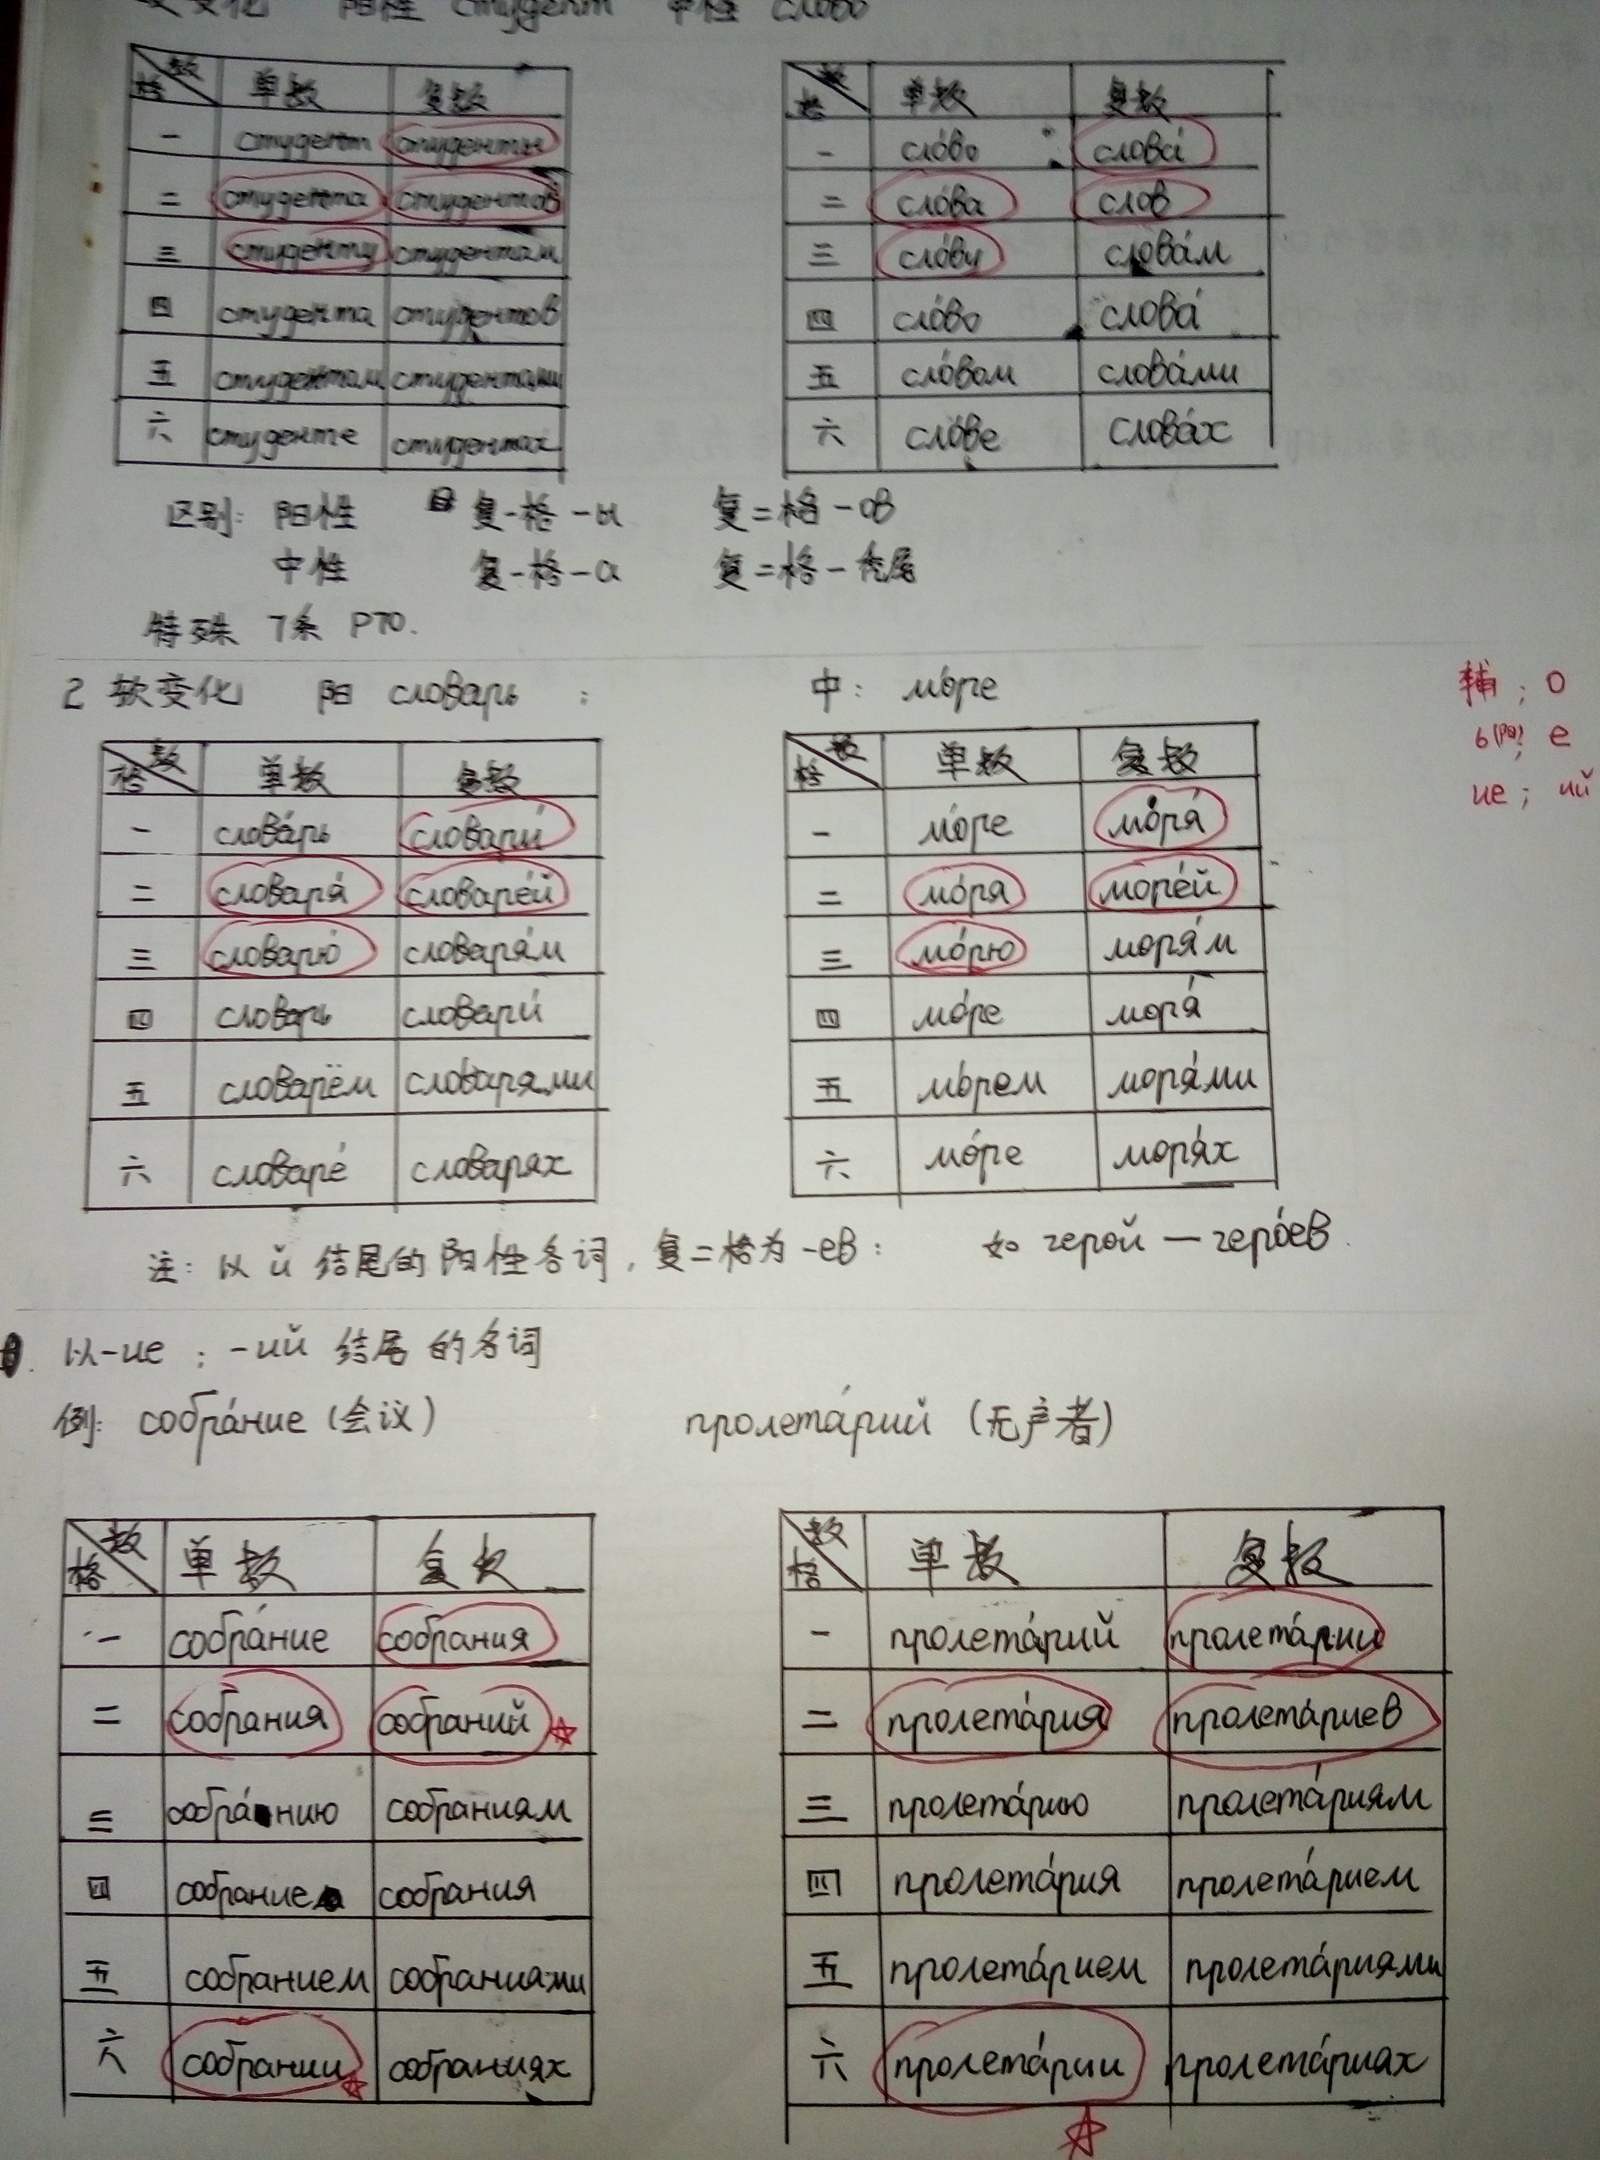 变化 阳性 студент 中性 слово
格 数 单数 复数
一 студент студенты
二 студента студентов
三 студенту студентам
四 студента студентов
五 студентам студентами
六 студенте студентах
格 数 单数 复数
一 сло́во слова́
二 сло́ва слов
三 сло́ву слова́м
四 сло́во слова́
五 сло́вом слова́ми
六 сло́ве слова́х
区别: 阳性 复一格 -ы 复二格 -ов
中性 复一格 -а 复二格 - 秃尾
特殊 7条 P70.
2 软变化 阳 словарь ; 中: мо́ре
辅 ; о
ь(阳) ; е
ие ; ий
格 数 单数 复数
一 слова́рь словари́
二 словаря́ словаре́й
三 словарю́ словаря́м
四 словарь словари́
五 словарём словарями
六 словаре́ словарях
格 数 单数 复数
一 мо́ре моря́
二 мо́ря море́й
三 мо́рю моря́м
四 мо́ре моря́
五 мо́рем моря́ми
六 мо́ре моря́х
注: 以 й 结尾的阳性名词, 复二格为 -ев: 如 герой — геро́ев.
以-ие ; -ий 结尾的名词
例: собра́ние (会议) пролета́рий (无产者)
格 数 单数 复数
一 собра́ние собрания
二 собрания собраний
三 собра́нию собраниям
四 собрание собрания
五 собранием собраниями
六 собрании собраниях
格 数 单数 复数
一 пролета́рий пролета́рии
二 пролета́рия пролета́риев
三 пролета́рию пролета́риям
四 пролета́рия пролета́рием
五 пролета́рием пролета́риями
六 пролета́рии пролета́риах